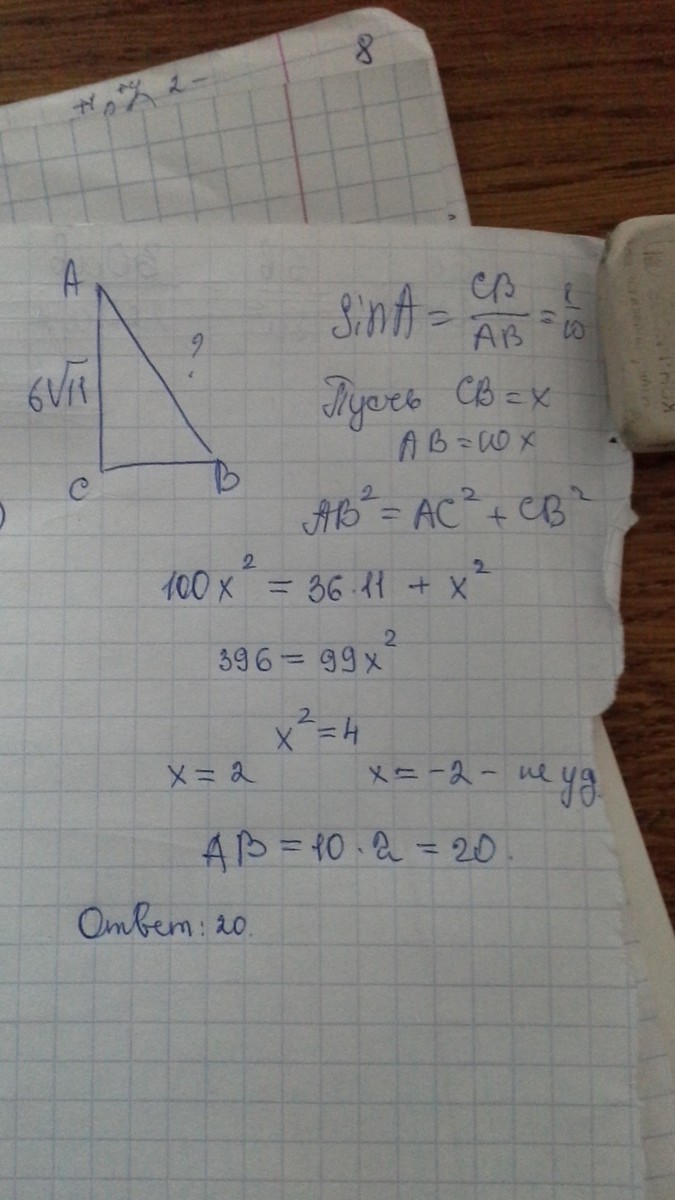 8
2 –
A
6√11
?
C
B
SinA = CB/AB = 1/10
Пусть CB = x
AB = 10x
AB² = AC² + CB²
100x² = 36·11 + x²
396 = 99x²
x² = 4
x = 2 x = -2 - не уд.
AB = 10·2 = 20.
Ответ: 20.